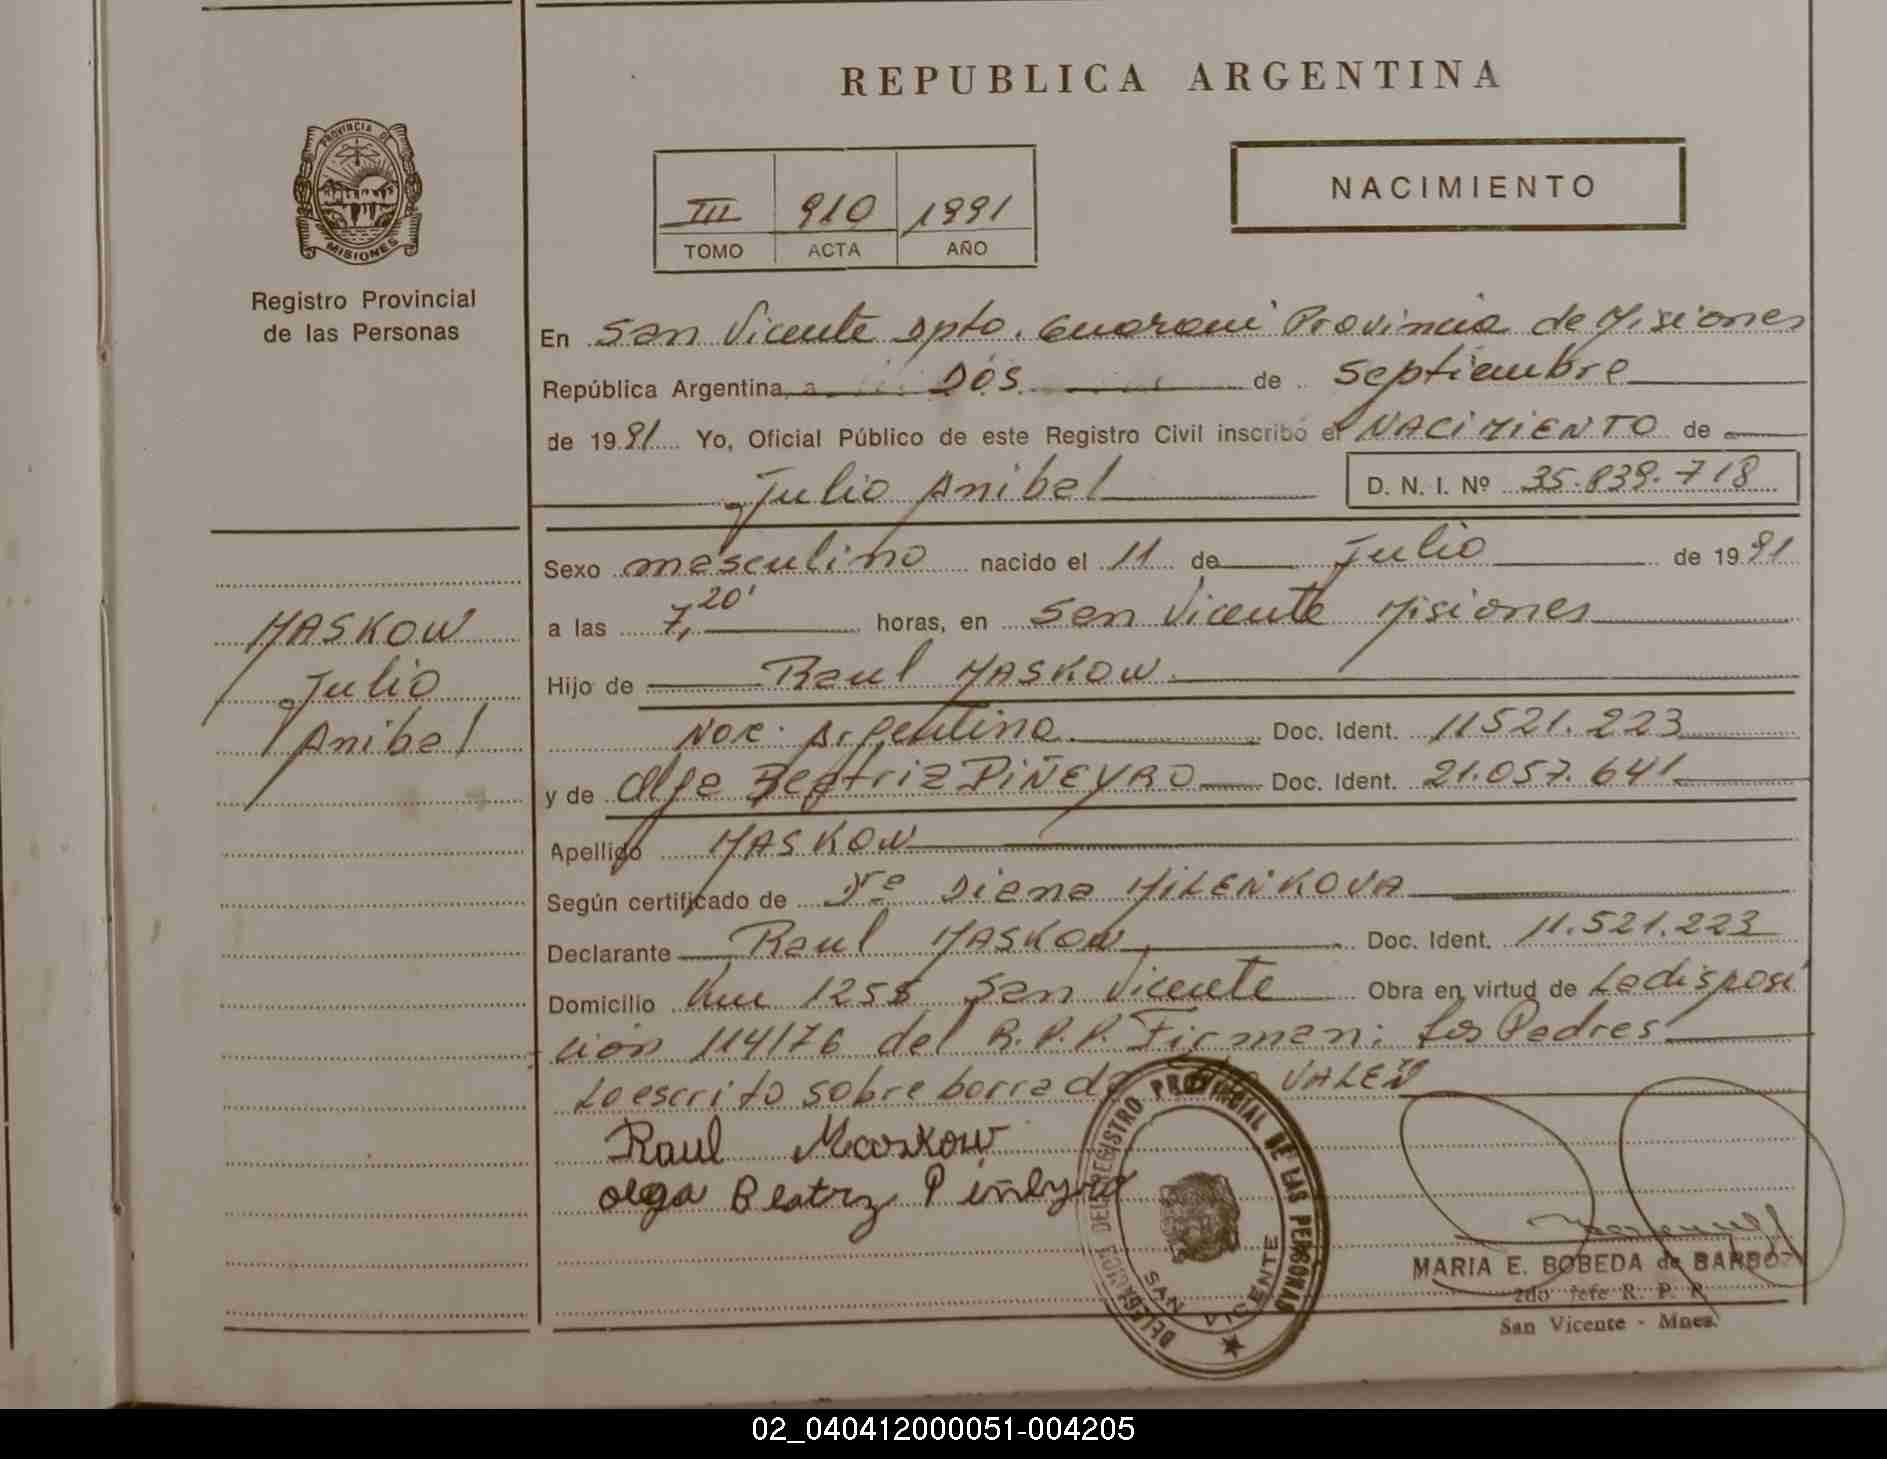 REPUBLICA ARGENTINA
PROVINCIA DE
MISIONES
Registro Provincial
de las Personas
III 910 1991
TOMO ACTA AÑO
NACIMIENTO
En San Vicente Dpto. Guarani Provincia de Misiones
República Argentina, a DOS de Septiembre
de 1991 Yo, Oficial Público de este Registro Civil inscribo el NACIMIENTO de
Julio Anibal D. N. I. Nº 35.839.718
Sexo masculino nacido el 11 de Julio de 1991
MASKOW
Julio
Anibal
a las 7,20' horas, en San Vicente Misiones
Hijo de Raul MASKOW
Nac. Argentina Doc. Ident. 11521.223
y de Olga Beatriz PIÑEYRO Doc. Ident. 21.057.641
Apellido MASKOW
Según certificado de Dra Diana MILENKOVA
Declarante Raul MASKOW Doc. Ident. 11.521.223
Domicilio Km 1255 San Vicente Obra en virtud de La disposi
ción 114/76 del R.P.P. Firman: Los Padres
Lo escrito sobre borrado VALEN
Raul Maskow
olga Beatriz Piñeyro
DELEGACION DEL REGISTRO PROVINCIAL DE LAS PERSONAS
SAN VICENTE
MARIA E. BOBEDA de BARBOZA
2do Jefe R. P. P.
San Vicente - Mnes.
02_040412000051-004205